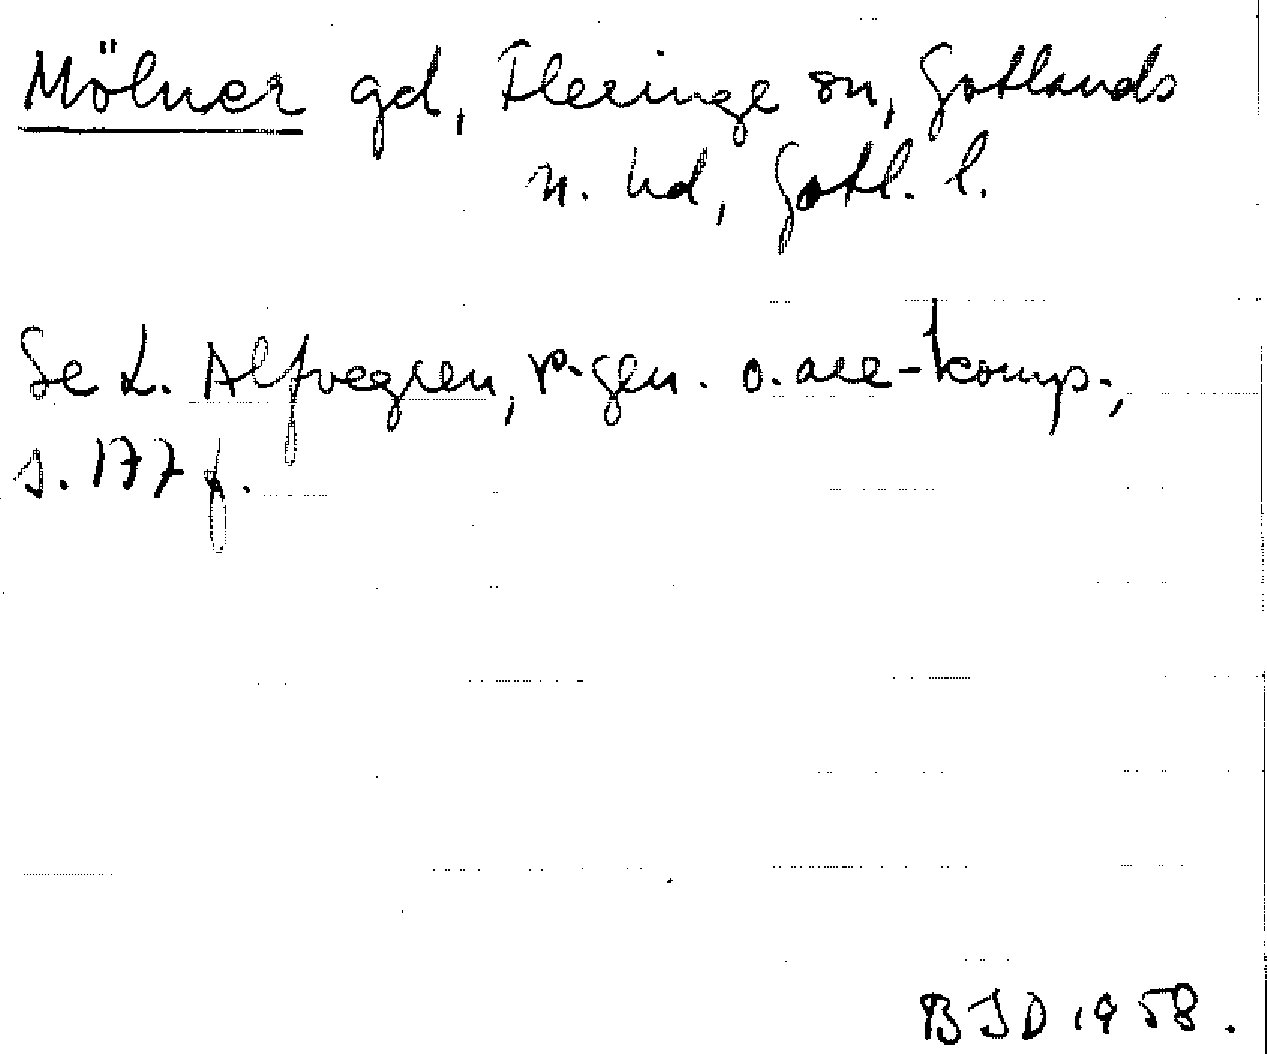 Mölner gd, Fleringe sn, Gotlands
n. hd, Gotl. l.
Se L. Alfvegren, r-gen. o. are-komp.,
s. 177 f.
BJD 1958.